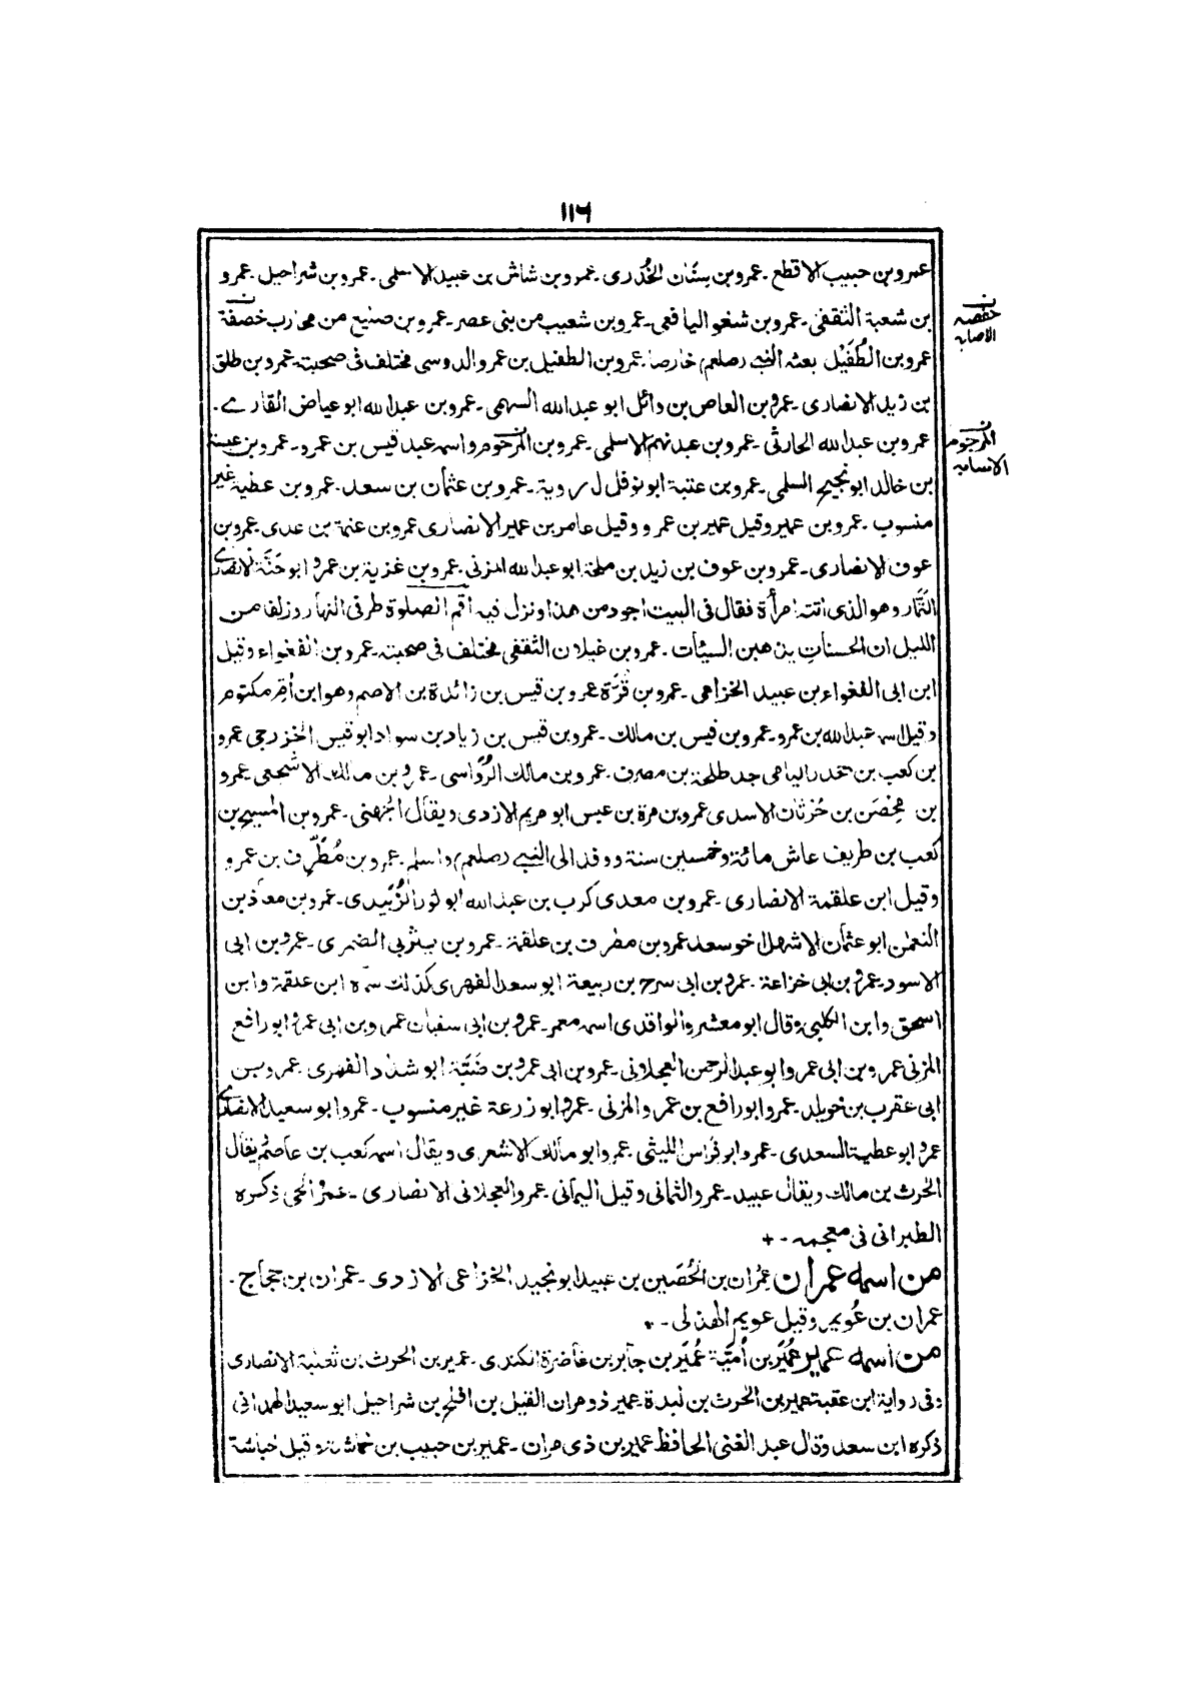 ١١٦
عمرو بن حبيب الاقطع ـ عمرو بن سنان الخُدرى ـ عمرو بن شاش بن عبيد الاسلمى ـ عمرو بن شراحيل ـ عمرو
بن شعبة الثقفى ـ عمرو بن شغو اليافعى ـ عمرو بن شعيب من بنى عصر ـ عمرو بن صنيع من محارب خصفة
حفصه
الاصابه
عمرو بن الطُفَيْل بعثه النبي صلعم خارصا ـ عمرو بن الطفيل بن عمرو الدوسى مختلف فى صحبته ـ عمرو بن طلق
بن زيد الانصارى ـ عمرو بن العاص بن وائل ابو عبد الله السهمى ـ عمرو بن عبد الله ابو عياض القارے ـ
عمرو بن عبد الله الحارثى ـ عمرو بن عبد نهم الاسلمى ـ عمرو بن المرحوم واسمه عبد قيس بن عمرو ـ عمرو بن عبسة
المرجوم
بن خالد ابو نجيح السلمى ـ عمرو بن عتبة ابو نوفل له روية ـ عمرو بن عثمان بن سعد ـ عمرو بن عطية غير
منسوب ـ عمرو بن عمير وقيل عمير بن عمرو وقيل عامر بن عمير الانصارى عمرو بن عنمة بن عدى ـ عمرو بن
عوف الانصارى ـ عمرو بن عوف بن زيد بن ملحة ابو عبد الله المزنى ـ عمرو بن غزية بن عمرو ابو حَنَّة الانصارے
التَمَّار وهو الذى اتته امرأة فقال فى البيت اجود من هذا ونزل فيه اقم الصلوة طرفى النهار وزلفا من
الليل ان الحسنات يذهبن السيئات ـ عمرو بن غيلان الثقفى مختلف فى صحبته ـ عمرو بن الفغواء وقيل
ابن ابى الفغواء بن عبيد الخزاعى ـ عمرو بن قُرَّة عمرو بن قيس بن زائدة بن الاصم وهو ابن اُم مكتوم
وقيل اسمه عبد الله بن عمرو ـ عمرو بن قيس بن مالك ـ عمرو بن قيس بن زياد بن سواد ابو قيس الخزرجى عمرو
بن كعب بن جحدر اليامى جد طلحة بن مصرف ـ عمرو بن مالك الرُّواسى ـ عمرو بن مالك الاشجعى عمرو
بن مِحْصَن بن حُرثان الاسدى عمرو بن مرة بن عبس ابو مريم الازدى ويقال الجهنى ـ عمرو بن المسبح بن
كعب بن طريف عاش مائة وخمسين سنة ووفد الى النبي صلعم واسلم ـ عمرو بن مُطَرِّف بن عمرو
وقيل ابن علقمة الانصارى ـ عمرو بن معدى كرب بن عبد الله ابو ثور الزُّبَيدى ـ عمرو بن معاذ بن
النعمن ابو عثمان الاشهل اخو سعد عمرو بن مطرف بن علقمة ـ عمرو بن يثربى الضمرى ـ عمرو بن ابى
الاسود ـ عمرو بن ابى خزاعة ـ عمرو بن ابى سرح بن ربيعة ابو سعد الفهرى كذلك سمّاه ابن عقبة وابن
اسحق وابن الكلبى وقال ابو معشر والواقدى اسمه معمر ـ عمرو بن ابى سفيان عمرو بن ابى عمرو ابو رافع
المزنى عمرو بن ابى عمرو ابو عبد الرحمن العجلانى ـ عمرو بن ابى عمرو بن ضَبَّة ابو شداد الفهرى عمرو بن
ابى عقرب بن خويلد ـ عمرو ابو رافع بن عمرو المزنى ـ عمرو ابو زرعة غير منسوب ـ عمرو ابو سعيد الانصارے
عمرو ابو عطية السعدى ـ عمرو ابو فراس الليثى ـ عمرو ابو مالك الاشعرى ويقال اسمه كعب بن عاصم يقال
الحرث بن مالك ويقال عبيد ـ عمرو الثمالى وقيل اليمانى ـ عمرو العجلانى الانصارى ـ ذكره
الطبرانى فى معجمه ـ +
من اسمه عمران عِمْران بن الحُصَين بن عبيد ابو نجيد الخزاعى الازدى ـ عمران بن حجاج ـ
عمران بن عُويمر وقيل عويم الهذلى ـ
من اسمه عمير عُمَير بن اُمَيَّة عُمَير بن جابر بن غاضرة الكندى ـ عمير بن الحرث بن ثعلبة الانصارى
وفى رواية ابن عقبة عمير بن الحرث بن لبدة عمير ذو مران القيل بن افلح بن شراحيل ابو سعيد الهمدانى
ذكره ابن سعد وقال عبد الغنى الحافظ عمير بن ذى مران ـ عمير بن حبيب بن خماشة وقيل حباشة